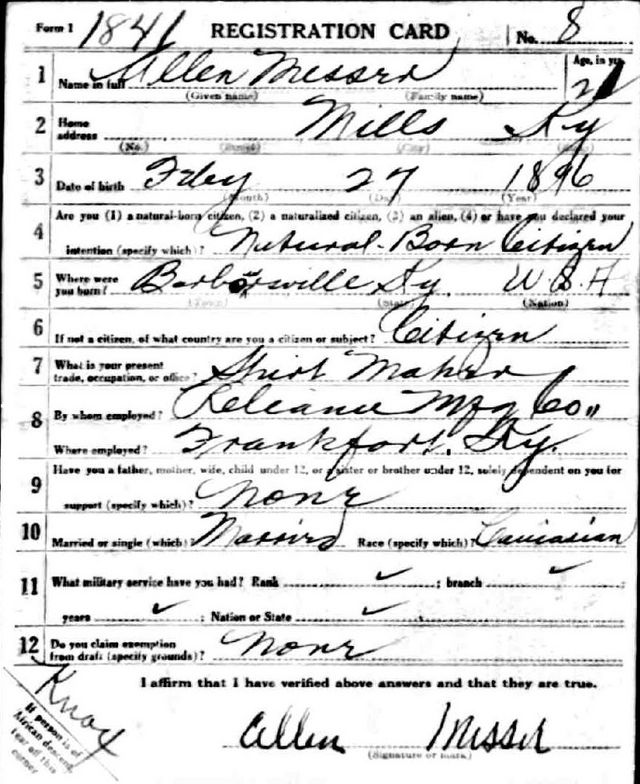 Form 1 1841 REGISTRATION CARD No. 8
1 Name in full Allen Messer Age, in yrs. 21
(Given name) (Family name)
2 Home address Mills Ky
(No.) (Street) (City) (State)
3 Date of birth Feby 27 1896
(Month) (Day) (Year)
4 Are you (1) a natural-born citizen, (2) a naturalized citizen, (3) an alien, (4) or have you declared your
intention (specify which)? Natural-Born Citizen
5 Where were you born? Barborsville Ky. U.S.A
(Town) (State) (Nation)
6 If not a citizen, of what country are you a citizen or subject? Citizen
7 What is your present trade, occupation, or office? Shirt Maker
8 By whom employed? Releance Mfg Co.,
Where employed? Frankfort, Ky.
9 Have you a father, mother, wife, child under 12, or a sister or brother under 12, solely dependent on you for
support (specify which)? None
10 Married or single (which)? Married Race (specify which)? Caucasian
11 What military service have you had? Rank ✓ ; branch ✓ ;
years ✓ ; Nation or State ✓
12 Do you claim exemption from draft (specify grounds)? None
I affirm that I have verified above answers and that they are true.
Knox
If person is of
African descent,
tear off this
corner
Allen Messer
(Signature or mark)